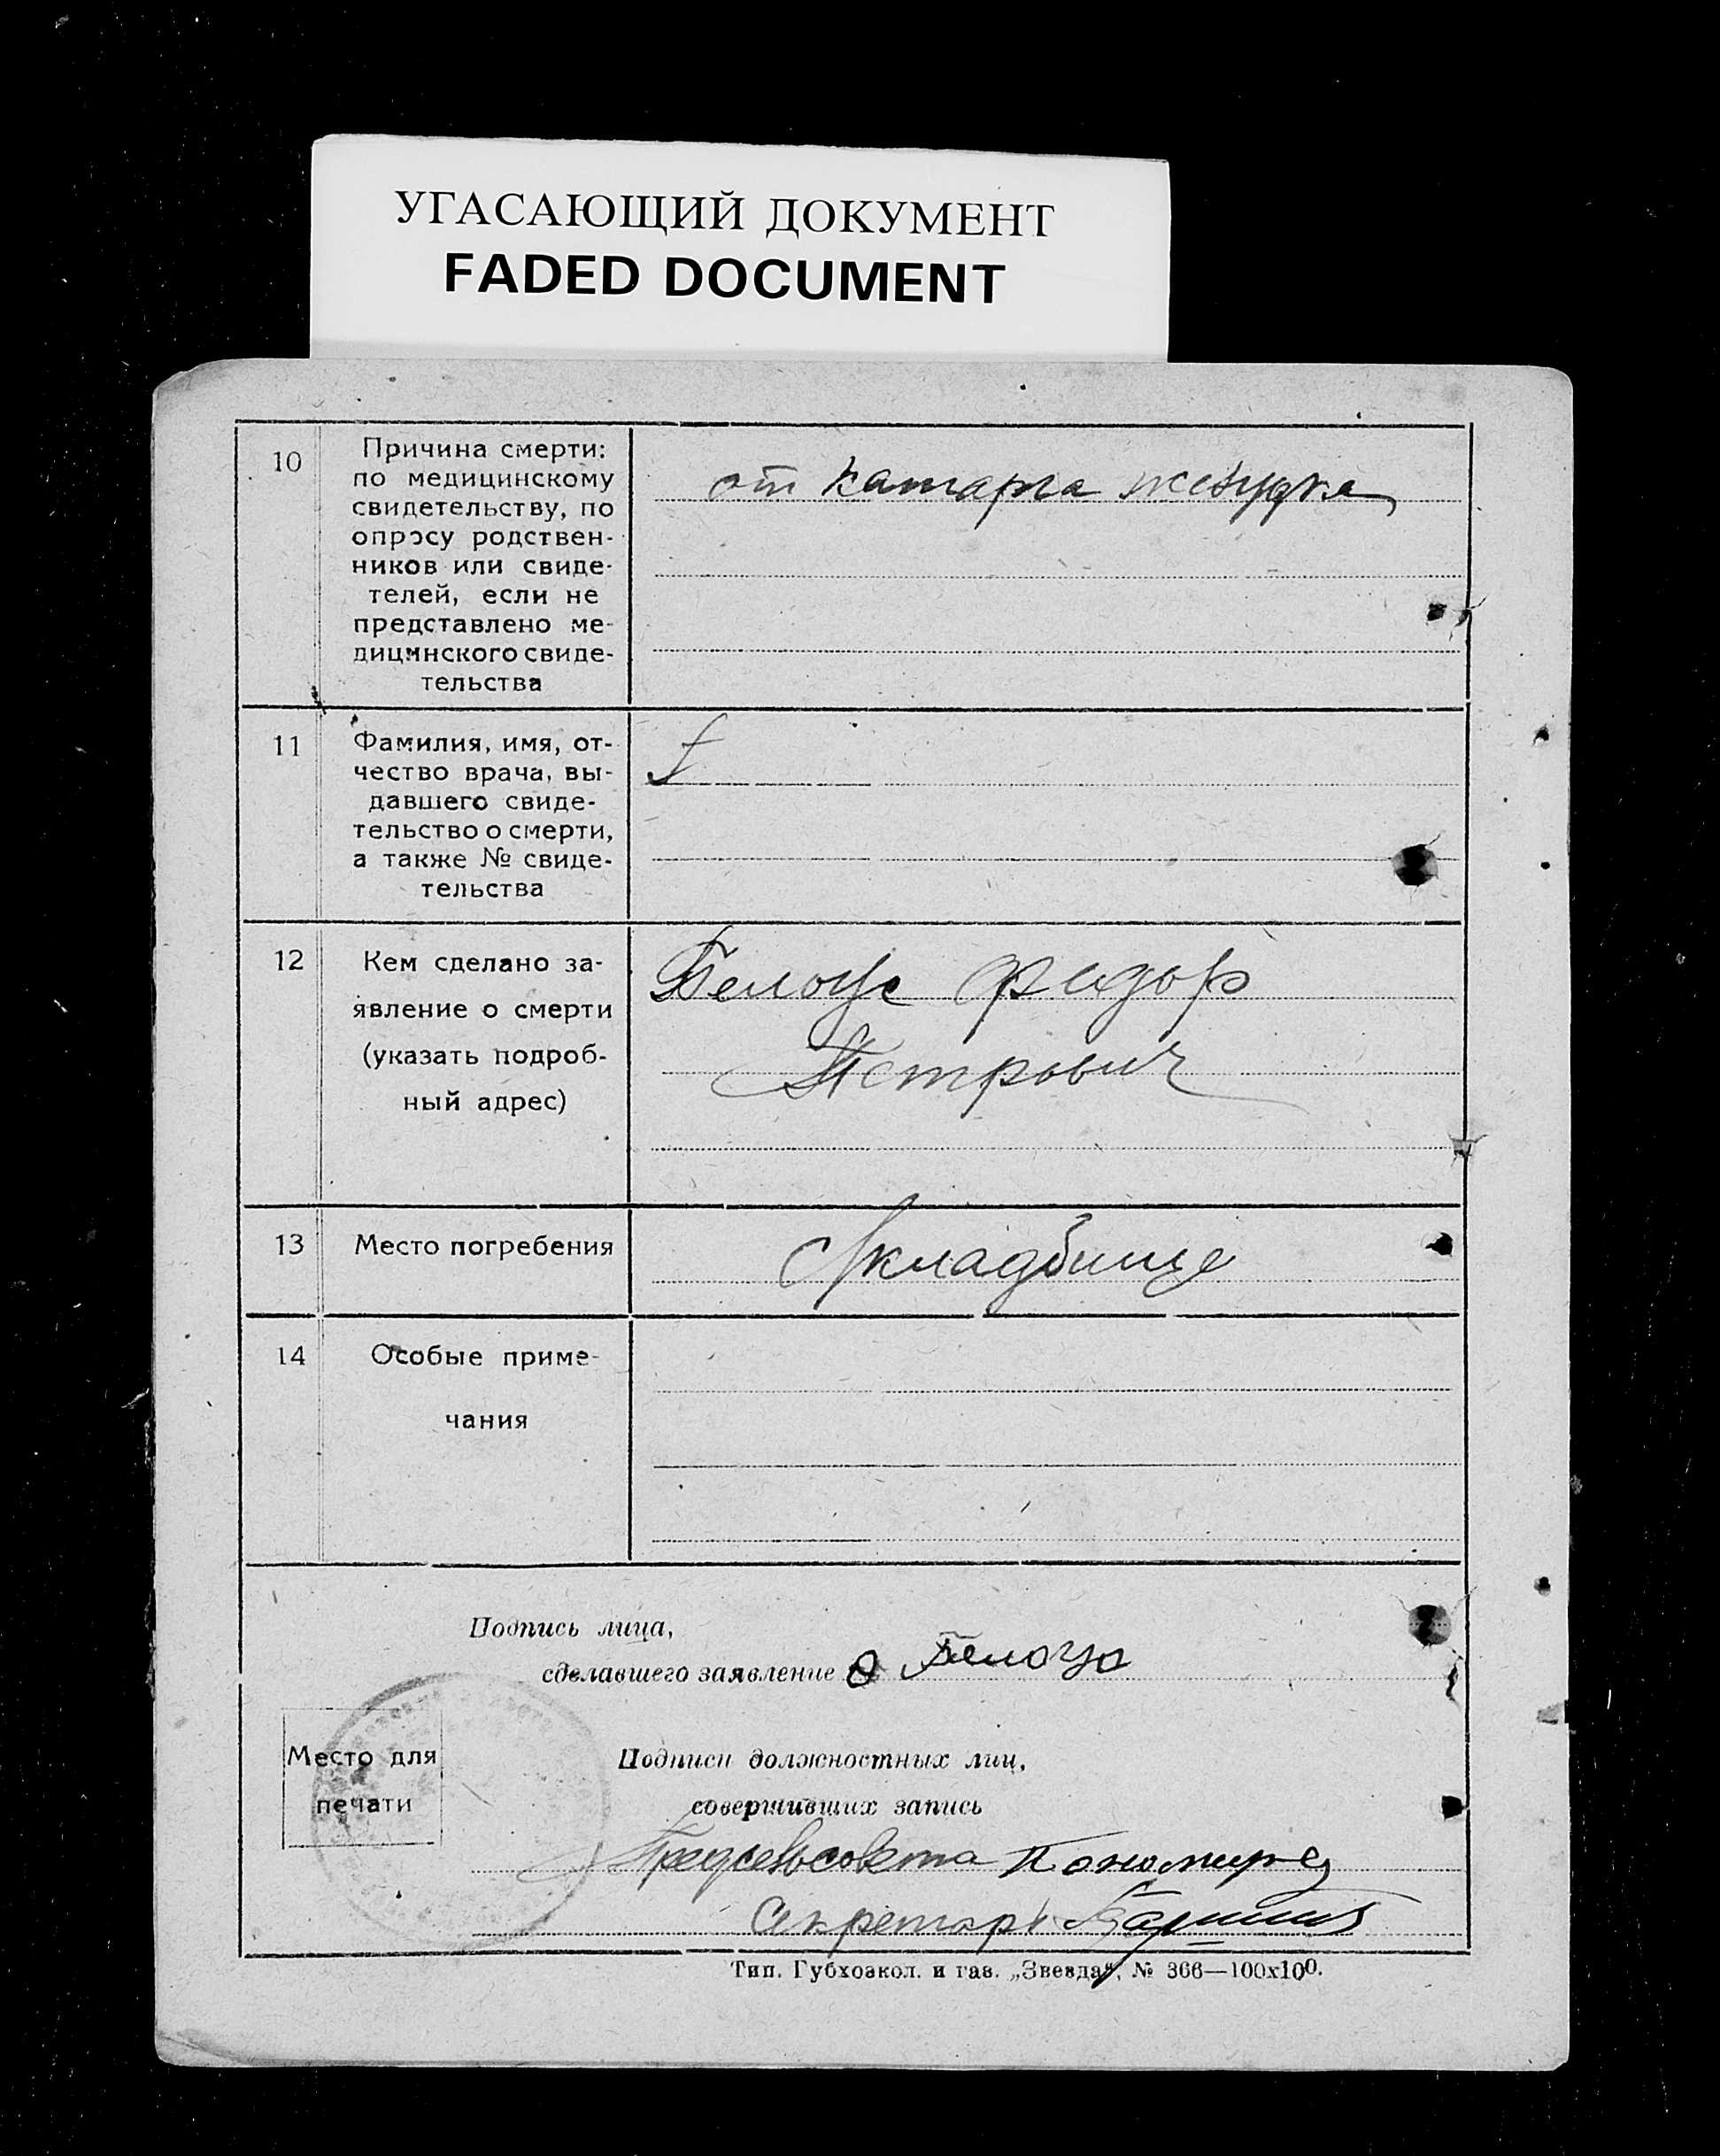 УГАСАЮЩИЙ ДОКУМЕНТ
FADED DOCUMENT
10
Причина смерти:
по медицинскому
свидетельству, по
опросу родствен-
ников или свиде-
телей, если не
представлено ме-
дицинского свиде-
тельства
от катарра желудка
11
Фамилия, имя, от-
чество врача, вы-
давшего свиде-
тельство о смерти,
а также № свиде-
тельства
12
Кем сделано за-
явление о смерти
(указать подроб-
ный адрес)
Белоус Федор
Петрович
13
Место погребения
кладбище
14
Особые приме-
чания
Подпись лица,
сделавшего заявление Белоус
Место для
печати
Подписи должностных лиц,
совершивших запись
Предсельсовета
Секретарь
Тип. Губхозкол. и газ. „Звезда“, № 366—100х100.